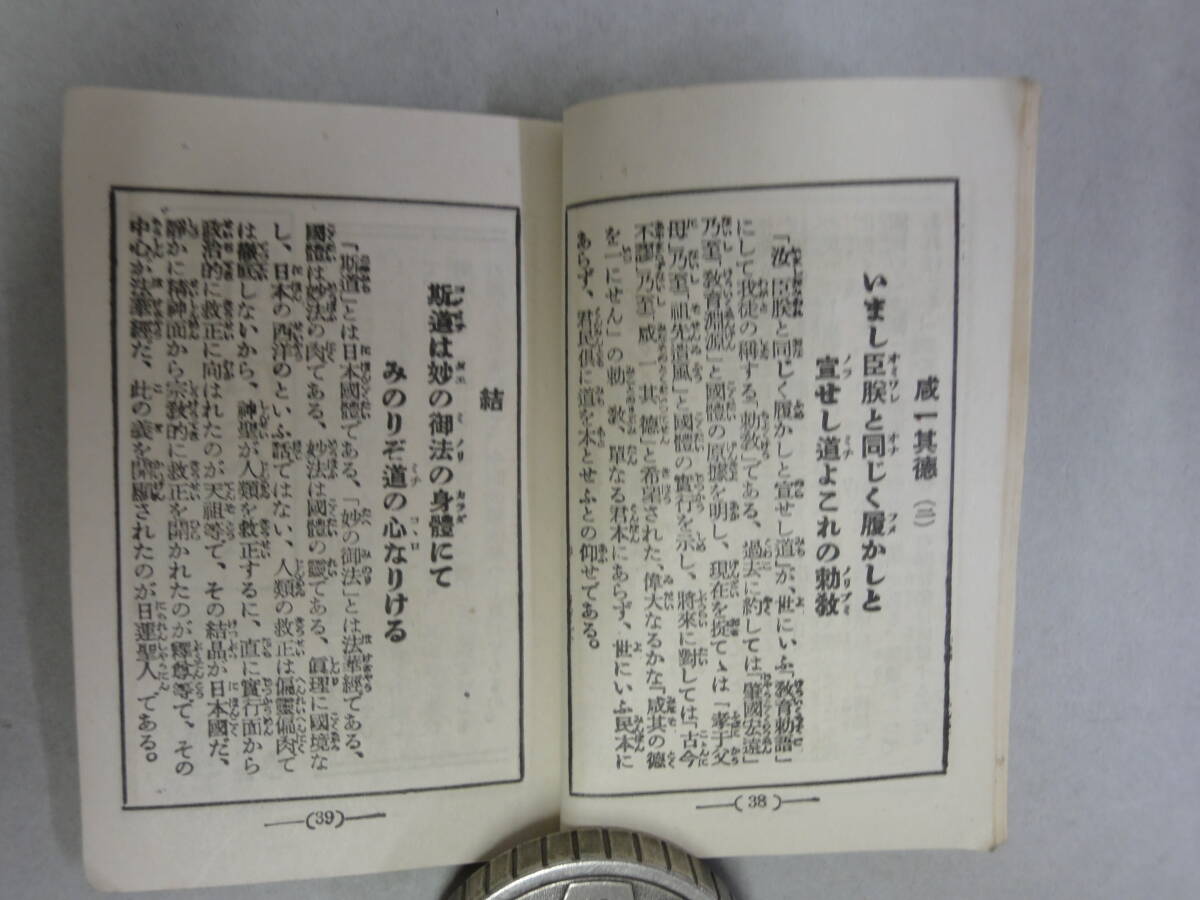 咸一其德(二)
いまし臣朕と同じく履かしと
宣せし道よこれの勅教
「汝臣朕と同じく履かしと宣せし道」が、世にいふ「敎育勅語」
にして我徒の稱する「勅敎」である、過去に約しては「肇國宏遠」
乃至「敎育淵源」と國體の原據を明し、現在を掟てゝは「孝于父
母」乃至「祖先遺風」と國體の實行を示し、將來に對しては「古今
不謬」乃至「咸一其德」と希望された、偉大なるかな「咸其の德
を一にせん」の勅敎、單なる君本にあらず、世にいふ民本に
あらず、君民俱に道を本とせふとの仰せである。
(38)
結
斯道は妙の御法の身體にて
みのりぞ道の心なりける
「斯道」とは日本國體である、「妙の御法」とは法華經である、
國體は妙法の肉である、妙法は國體の靈である、眞理に國境な
し、日本の西洋のといふ話ではない、人類の救正は偏靈偏肉で
は徹底しないから、神聖が人類を救正するに、直に實行面から
政治的に救正に向はれたのが天祖等で、その結晶が日本國だ、
靜かに精神面から宗敎的に救正を開かれたのが釋尊等で、その
中心が法華經だ、此の義を開顯されたのが日蓮聖人である。
(39)